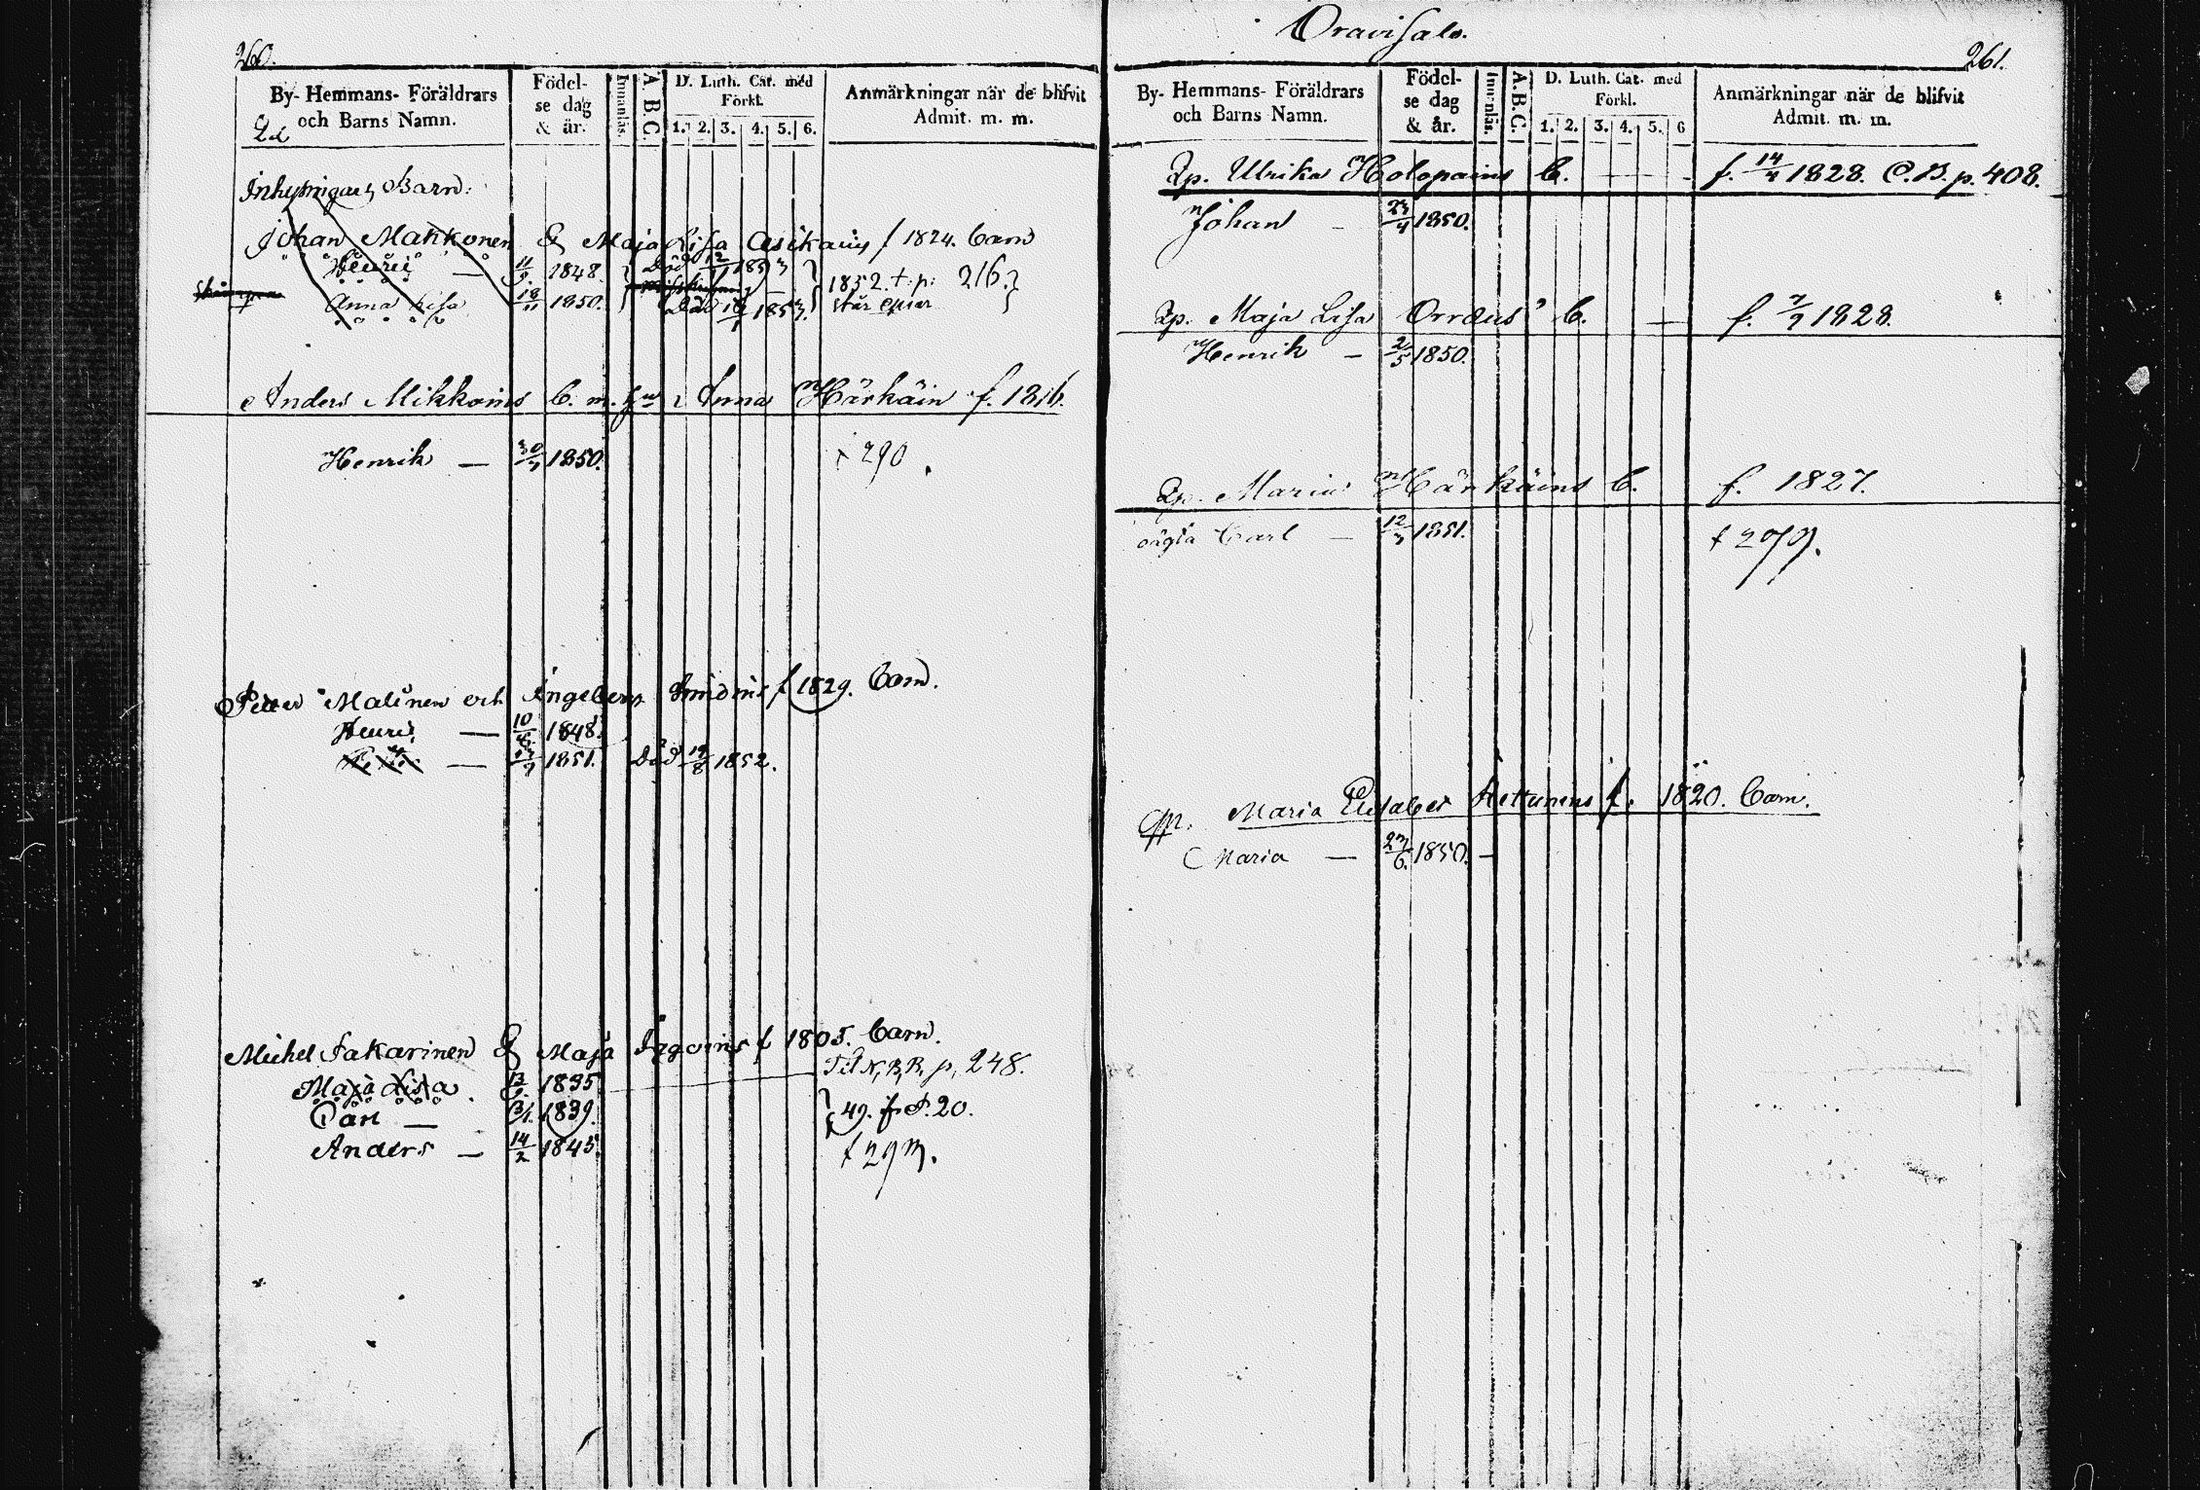 260.
By- Hemmans- Föräldrars och Barns Namn.
Födelse dag & år.
Innanläs.
A. B. C.
D. Luth. Cat. med Förkl.
1. 2. 3. 4. 5. 6.
Anmärkningar när de blifvit Admit. m. m.
Inhysingars Barn:
Johan Makkonen & Maja Lisa f 1824. barn
Henric — 11/9 1848 Död 1853
1852 + p: 216.
Anna Lisa 18/11 1850. Död 1853.
Anders Mikkoins b. m. Anna Härkäin f. 1816.
Henrik — 30/7 1850. + 290.
Petter Malinen och Ingeborg f 1829. barn.
Henric — 10/6 1848.
— 1851. Död 19/8 1852.
Michel Sakarinen & Maja f 1805. barn.
Maja Lisa 1835 Til N, B, R, p, 248.
Carl — 3/1. 1839. 49. f. P. 20.
Anders — 14/2 1845.
Oravisalo.
261.
By- Hemmans- Föräldrars och Barns Namn.
Födelse dag & år.
Innanläs.
A. B. C.
D. Luth. Cat. med Förkl.
1. 2. 3. 4. 5. 6
Anmärkningar när de blifvit Admit. m. m.
Qp. Ulrika Holopains b. — f. 14/4 1828. C. B. p. 408.
Johan — 23/4 1850.
Qp. Maja Lisa Orraus b. — f. 7/9 1828.
Henrik — 2/5 1850.
Qp. Maria Härkäins b. f. 1827.
oägta Carl — 12/7 1851.
Qp. Maria Elisabet Kettunens f. 1820. barn.
Maria — 27/6. 1850. —